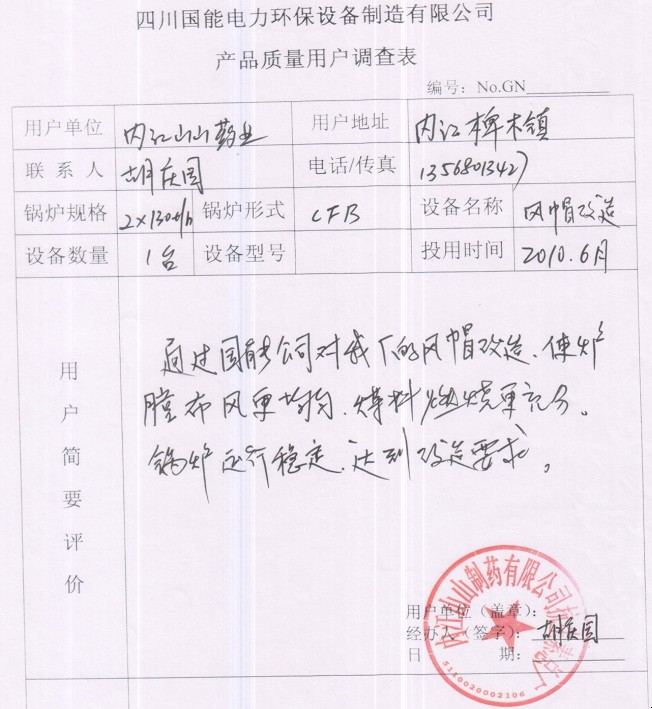 四川国能电力环保设备制造有限公司
产品质量用户调查表
编号：No.GN
用户单位 内江山山药业 用户地址 内江椑木镇
联系人 胡庆国 电话/传真 13568013427
锅炉规格 2×130t/h 锅炉形式 CFB 设备名称 风帽改造
设备数量 1台 设备型号 投用时间 2010.6月
用户简要评价
通过国能公司对我厂的风帽改造、使炉
膛布风更均匀、燃料燃烧更充分。
锅炉运行稳定、达到改造要求。
内江山山制药有限公司
用户单位（盖章）：
经办人（签字）：胡庆国
日 期：
5110020002106